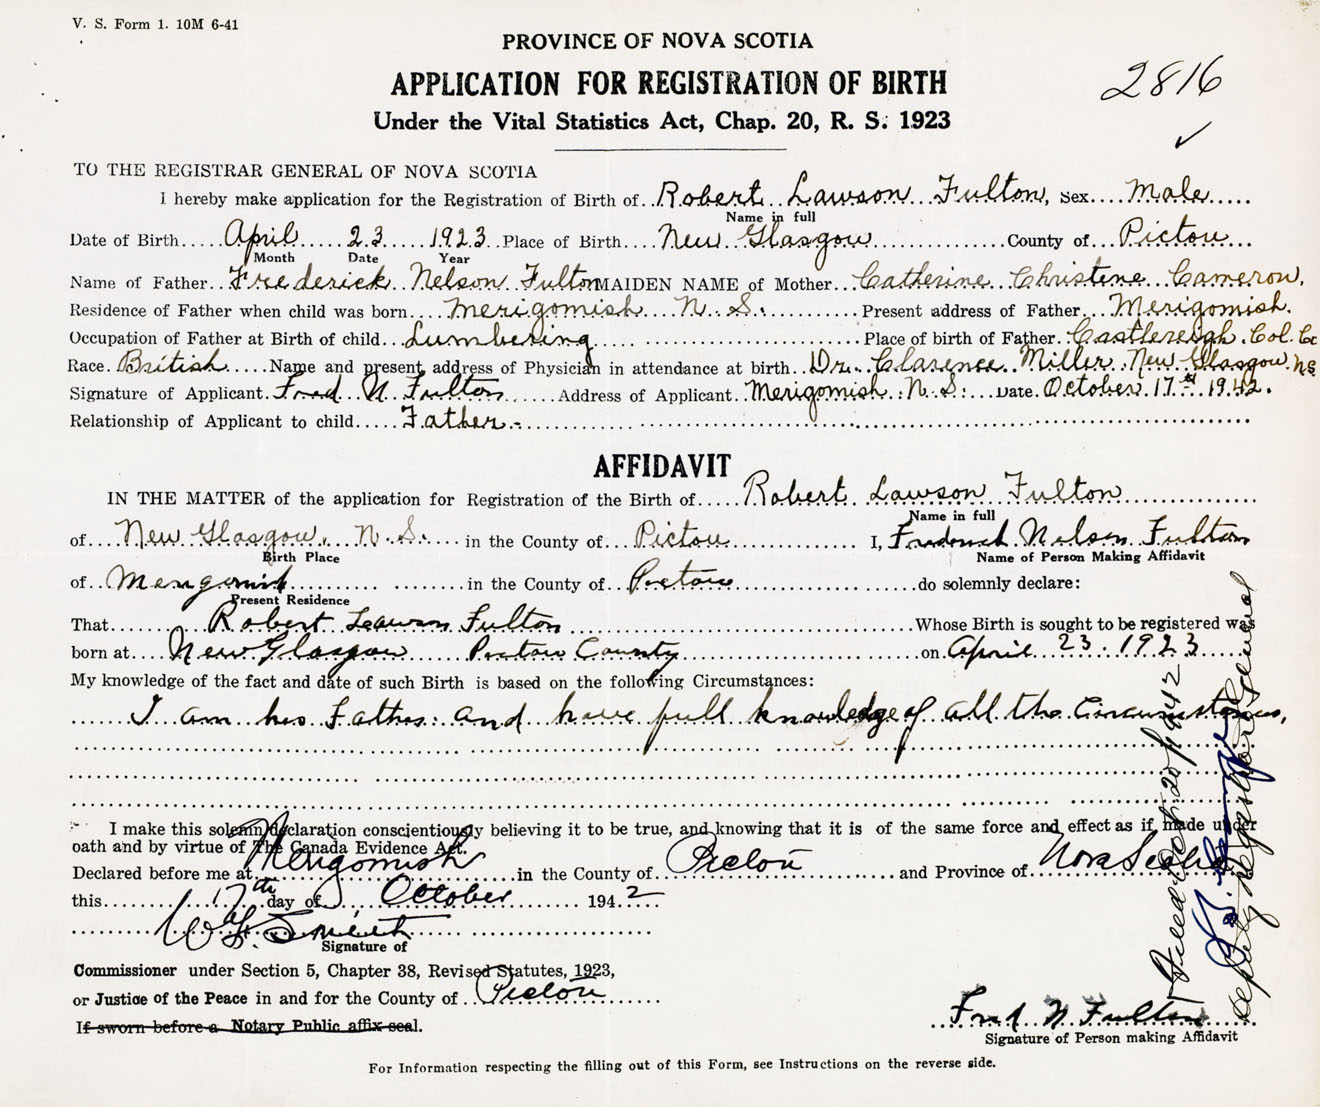 V. S. Form 1. 10M 6-41
PROVINCE OF NOVA SCOTIA
2816
APPLICATION FOR REGISTRATION OF BIRTH
Under the Vital Statistics Act, Chap. 20, R. S. 1923
TO THE REGISTRAR GENERAL OF NOVA SCOTIA
I hereby make application for the Registration of Birth of Robert Lawson Fulton, Sex Male
Name in full
Date of Birth April 23 1923 Place of Birth New Glasgow County of Pictou
Month Date Year
Name of Father Frederick Nelson Fulton MAIDEN NAME of Mother Catherine Christene Cameron,
Residence of Father when child was born Merigomish N. S. Present address of Father Merigomish.
Occupation of Father at Birth of child Lumbering Place of birth of Father Castlereigh. Col. Co
Race. British Name and present address of Physician in attendance at birth Dr. Clarence Miller New Glasgow. N S
Signature of Applicant Fred N Fulton Address of Applicant Merigomish. N. S. Date October 17th 1942.
Relationship of Applicant to child Father.
AFFIDAVIT
IN THE MATTER of the application for Registration of the Birth of Robert Lawson Fulton
Name in full
of New Glasgow, N. S. in the County of Pictou I, Frederick Nelson Fulton
Birth Place Name of Person Making Affidavit
of Merigomish in the County of Pictou do solemnly declare:
Present Residence
That Robert Lawson Fulton Whose Birth is sought to be registered was
born at New Glasgow Pictou County on April 23. 1923
My knowledge of the fact and date of such Birth is based on the following Circumstances:
I am his Father and have full knowledge of all the Circumstances,
I make this solemn declaration conscientiously believing it to be true, and knowing that it is of the same force and effect as if made under
oath and by virtue of The Canada Evidence Act.
Declared before me at Merigomish in the County of Pictou and Province of Nova Scotia
this 17th day of October 1942
W Smith
Signature of
Commissioner under Section 5, Chapter 38, Revised Statutes, 1923,
or Justice of the Peace in and for the County of Pictou
If sworn before a Notary Public affix seal.
Fred N Fulton
Signature of Person making Affidavit
For Information respecting the filling out of this Form, see Instructions on the reverse side.
Filed Oct. 20/1942
Deputy Registrar General